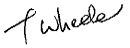 T Wheeler